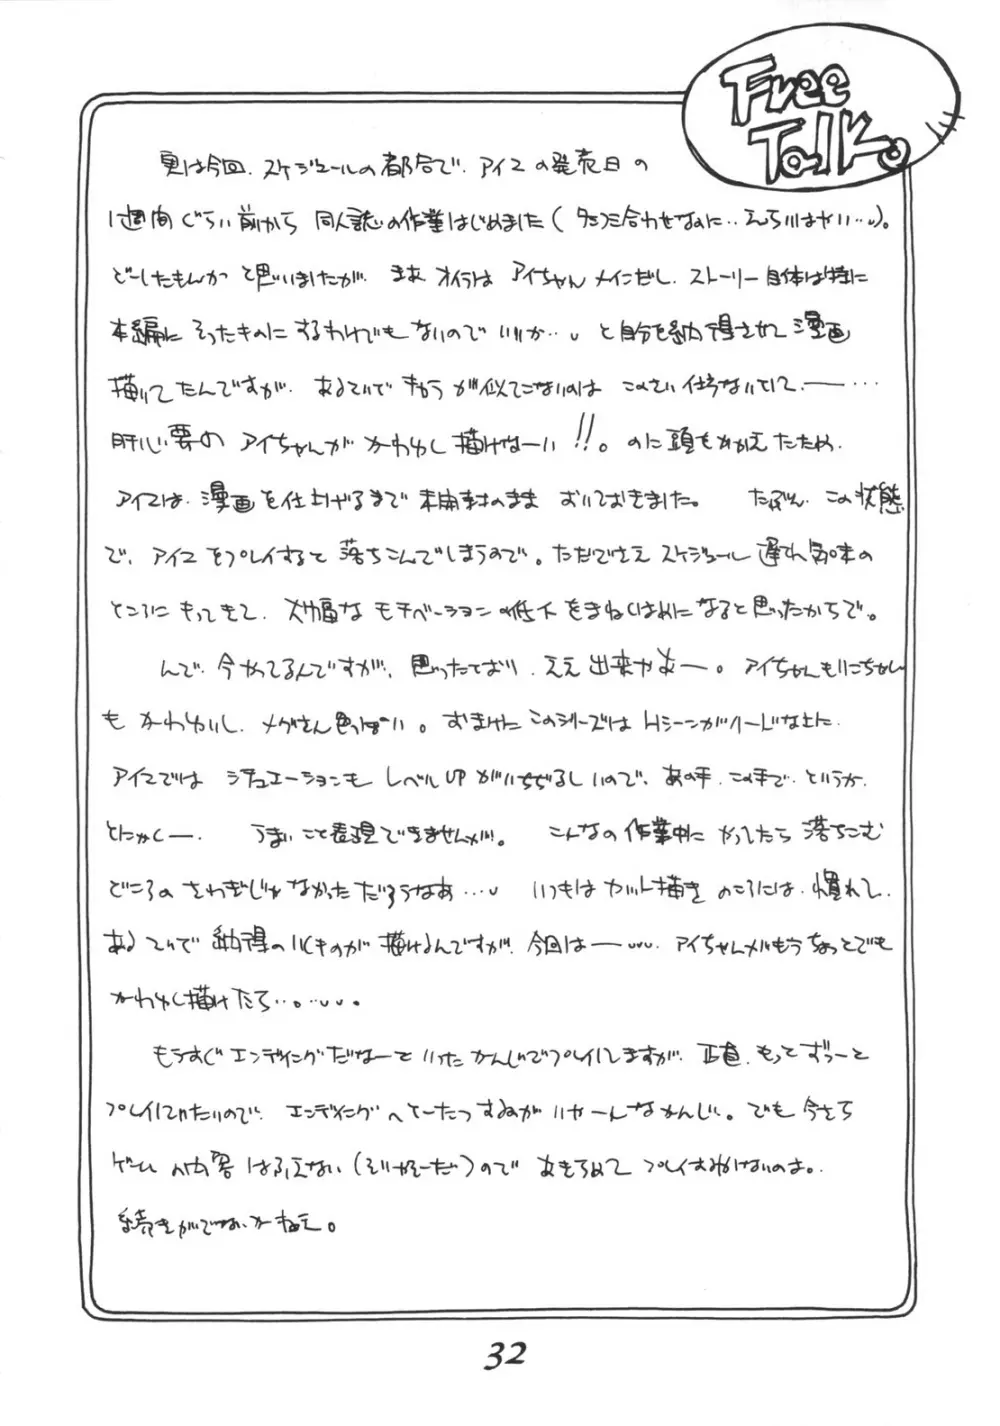 Free
Talk。
実は今回、スケジュールの都合で、アイマの発売日の
1週間ぐらい前から 同人誌の作業はじめました(
どーしたもんかと思いましたが、まぁ オイラは アイちゃん メインだし、ストーリー自体は特に
本編に そったものに するわけでもないので いいか‥ と自分を納得させて漫画
描いてたんですが、あるていどキャラが似てこないのは このさい仕方ないとして、ー‥‥
肝心要の アイちゃんが かわゆく描けなーい!!。のに頭をかかえたため、
アイマは、漫画を仕上げるまで 未開封のまま おいておきました。 たぶん、この状態
で、アイマをプレイすると落ちこんでしまうので。ただでさえ スケジュール 遅れ気味の
ところに もってきて、大幅な モチベーションの低下をまねくはめになると思ったからで。
んで、今やってるんですが、思ったとおり、ええ出来やぁー。アイちゃんもりこちゃん
も かわゆいし、メグさん色っぽいい。おまけに このシリーズは Hシーンがハードな上に、
アイマでは シチュエーションも レベルUPがいちぢるしいので、あの手、この手で、というか、
とにかくー、 うまいこと表現できませんが。 こんなの作業中に やってたら 落ちこむ
どころの さわぎじゃなかっただろうなぁ‥‥ いつもは カット描き のころには、慣れて、
あるていど 納得のいくものが描けるんですが、今回はー、アイちゃんがもうちょっとでも
かわゆく描けたら‥。‥。
もうすぐエンディングだなーと いった かんじでプレイしてますが、正直、もっとずぅーっと
プレイしてたいので、エンディングへ とーたつするのが いやーんなかんじ。でも 今さら
ゲーム 内容 はふえない(そりゃそーだ)ので あきらめて プレイするしかないのよ。
続きがでないかねぇ。
32